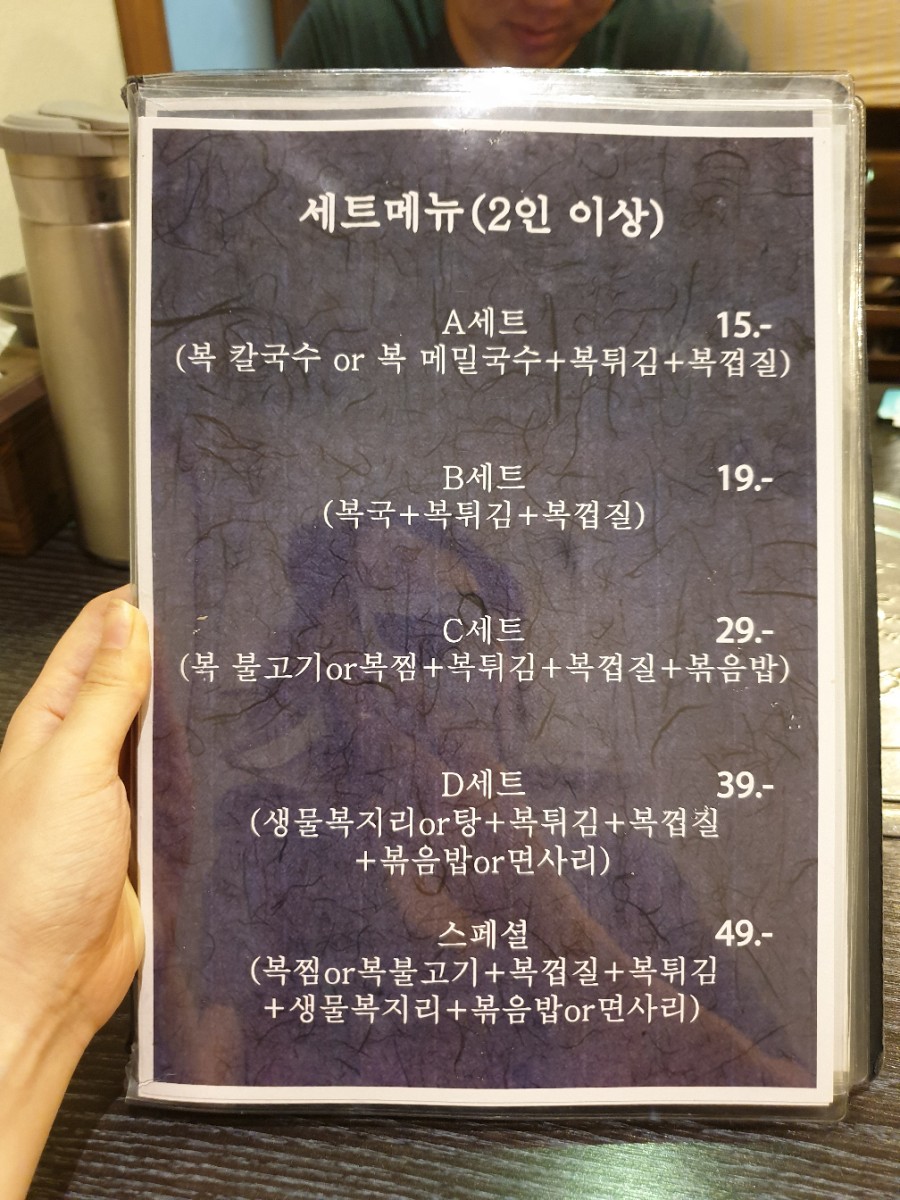 세트메뉴(2인 이상)
A세트 15.-
(복 칼국수 or 복 메밀국수+복튀김+복껍질)
B세트 19.-
(복국+복튀김+복껍질)
C세트 29.-
(복 불고기or복찜+복튀김+복껍질+볶음밥)
D세트 39.-
(생물복지리or탕+복튀김+복껍질
+볶음밥or면사리)
스페셜 49.-
(복찜or복불고기+복껍질+복튀김
+생물복지리+볶음밥or면사리)